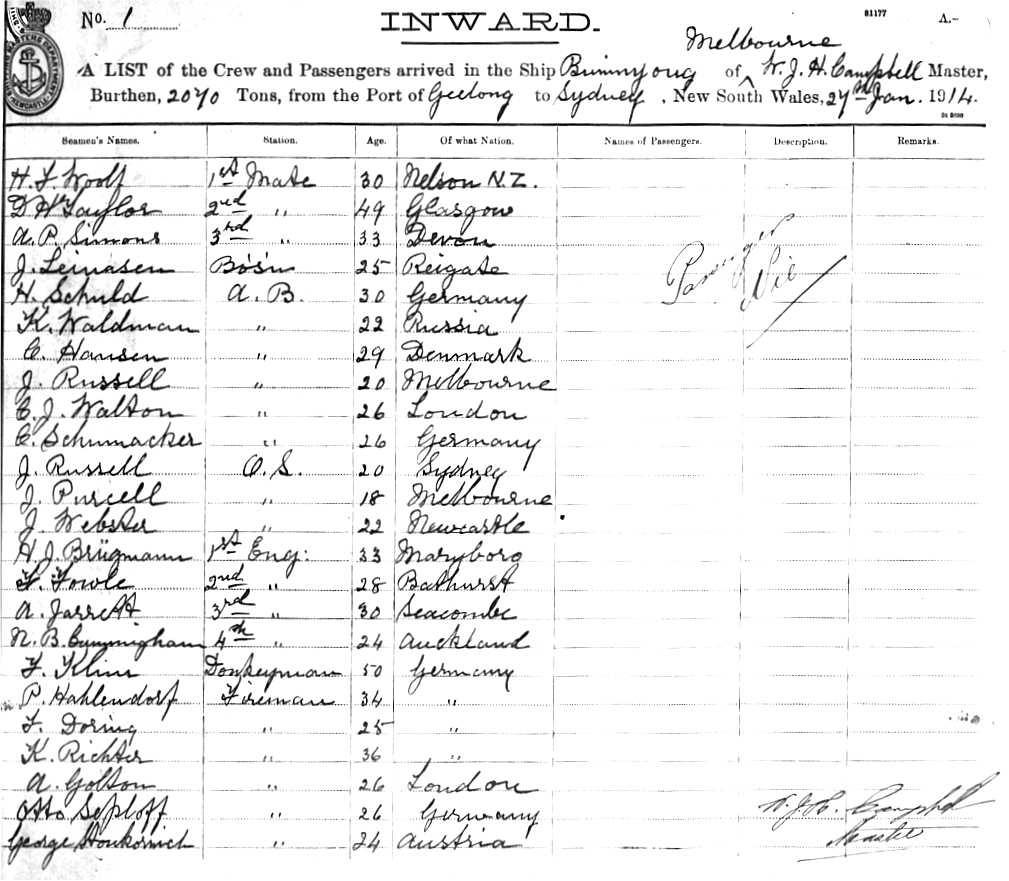 No. 1 INWARD. 81177 A.-
Melbourne
A LIST of the Crew and Passengers arrived in the Ship Buninyong of W. J. H. Campbell Master,
Burthen, 2070 Tons, from the Port of Geelong to Sydney, New South Wales, 27th Jan. 1914.
Seamen's Names. Station. Age. Of what Nation. Names of Passengers. Description. Remarks.
H. F. Woolf 1st Mate 30 Nelson N.Z.
D. W. Taylor 2nd " 49 Glasgow
A. P. Simons 3rd " 33 Devon
J. Leinasen Bo's'n 25 Reigate
H. Schuld A. B. 30 Germany
K. Waldman " 22 Russia
C. Hansen " 29 Denmark
J. Russell " 20 Melbourne
C. J. Walton " 26 London
C. Schumacker " 26 Germany
J. Russell O. S. 20 Sydney
J. Purcell " 18 Melbourne
J. Webster " 22 Newcastle
H. J. Brügmann 1st Eng: 33 Maryboro
F. Fowle 2nd " 28 Bathurst
A. Jarrett 3rd " 30 Seacombe
N. B. Cunningham 4th " 24 Auckland
F. Klim Donkeyman 50 Germany
P. Hahlendorf Fireman 34 "
F. Doring " 25 "
K. Richter " 36 "
A. Golton " 26 London
Otto Seploff " 26 Germany
George " 24 Austria
Passengers
Nil
W. J. H. Campbell
Master